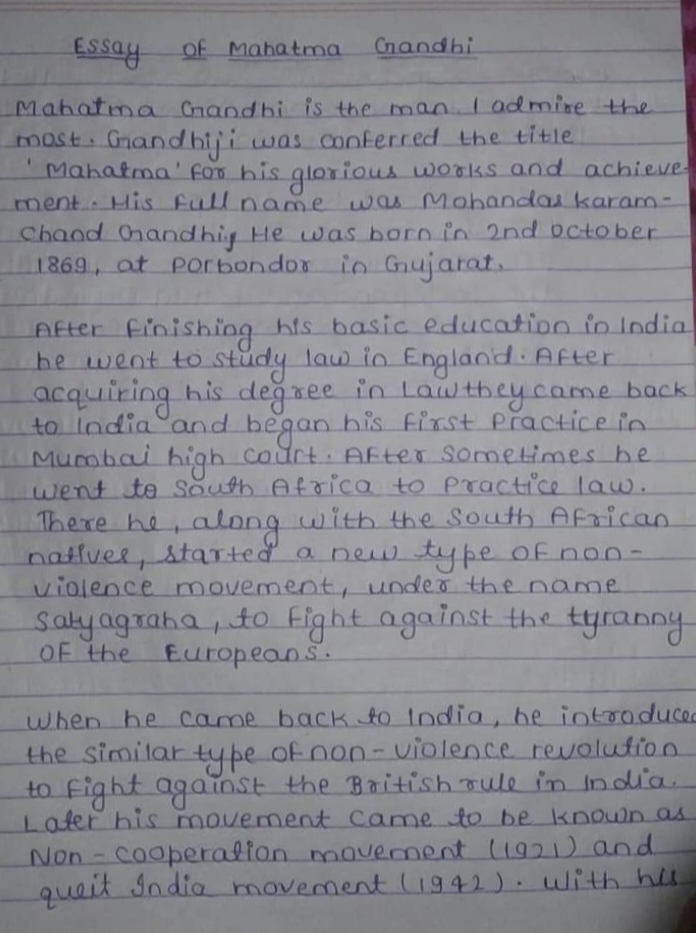 Essay of Mahatma Gandhi
Mahatma Gandhi is the man I admire the
most. Gandhiji was conferred the title
'Mahatma' for his glorious works and achieve-
ment. His full name was Mohandas karam-
Chand Gandhi, He was born in 2nd October
1869, at Porbondor in Gujarat.
After finishing his basic education in India
he went to study law in England. After
acquiring his degree in Law they came back
to India and began his first Practice in
Mumbai high court. After sometimes he
went to South Africa to Practice law.
There he, along with the South African
natives, started a new type of non-
violence movement, under the name
Satyagraha, to fight against the tyranny
of the Europeans.
When he came back to India, he introduced
the similar type of non-violence revolution
to fight against the British rule in India.
Later his movement came to be known as
Non-cooperation movement (1921) and
queit India movement (1942). With his